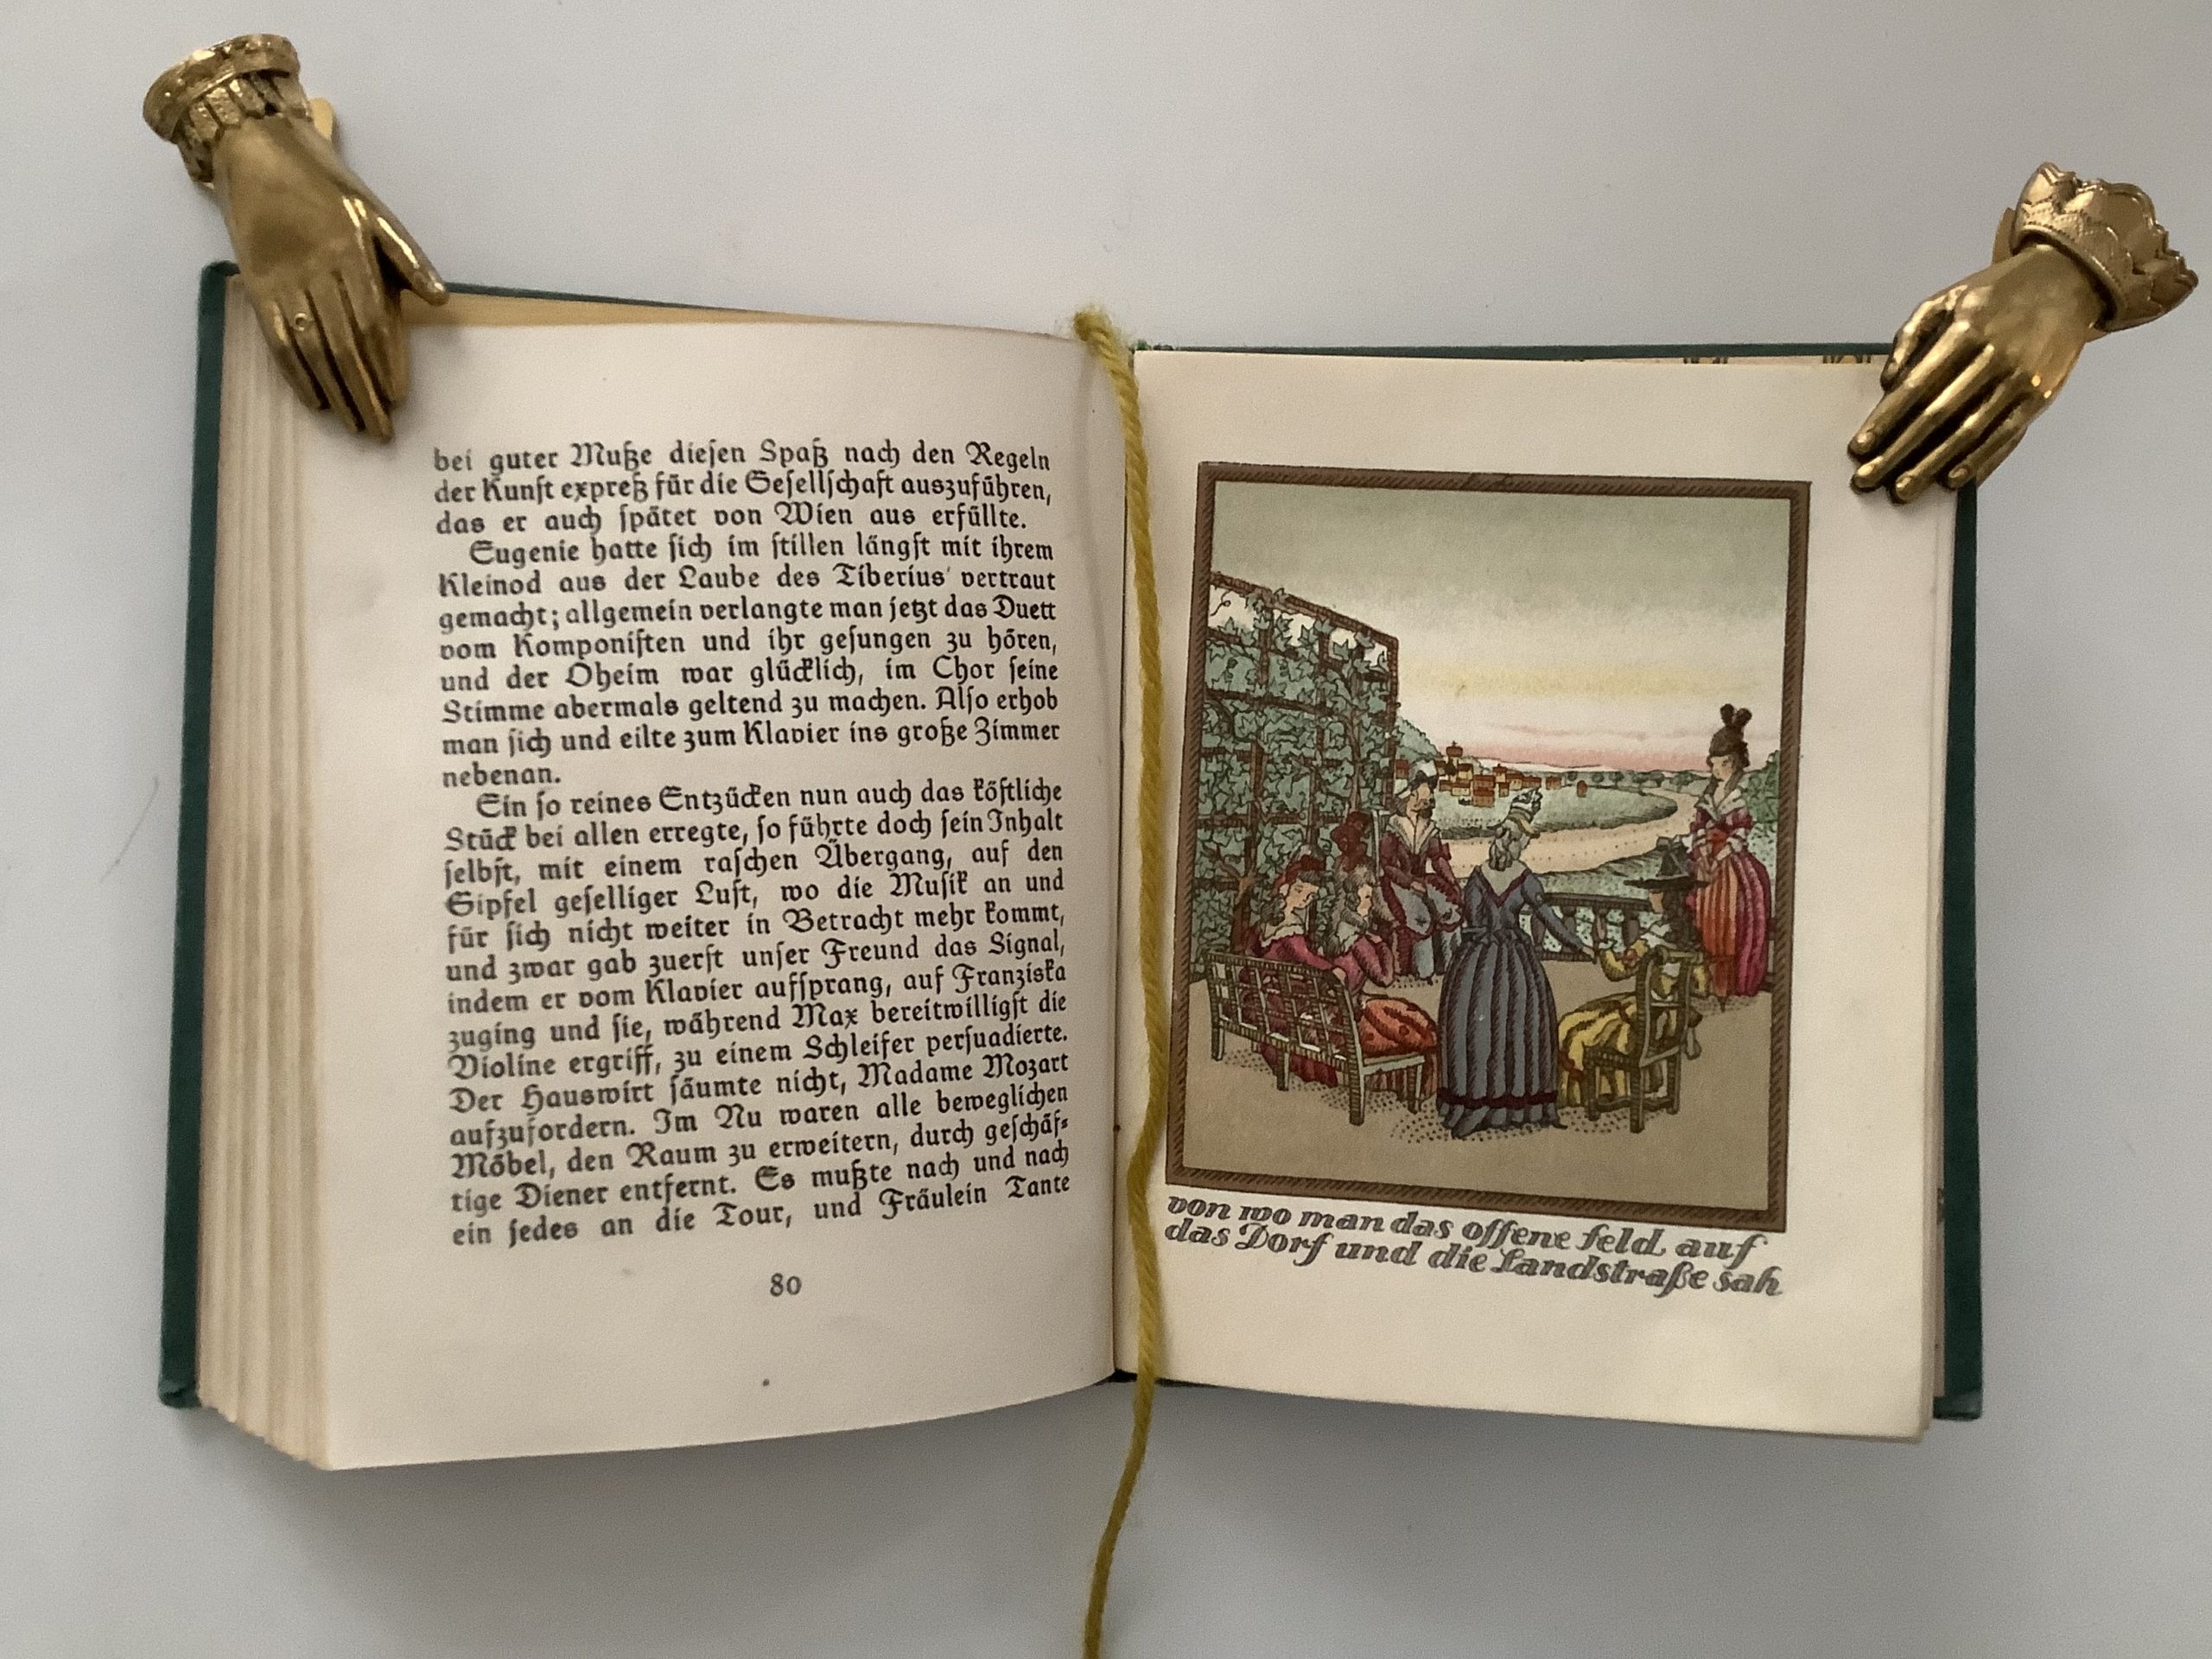 bei guter Muße dieſen Spaß nach den Regeln
der Kunſt expreß für die Geſellſchaft auszuführen,
das er auch ſpätet von Wien aus erfüllte.
Eugenie hatte ſich im ſtillen längſt mit ihrem
Kleinod aus der Laube des Tiberius vertraut
gemacht; allgemein verlangte man jetzt das Duett
vom Komponiſten und ihr geſungen zu hören,
und der Oheim war glücklich, im Chor ſeine
Stimme abermals geltend zu machen. Alſo erhob
man ſich und eilte zum Klavier ins große Zimmer
nebenan.
Ein ſo reines Entzücken nun auch das köſtliche
Stück bei allen erregte, ſo führte doch ſein Inhalt
ſelbſt, mit einem raſchen Übergang, auf den
Gipfel geſelliger Luſt, wo die Muſik an und
für ſich nicht weiter in Betracht mehr kommt,
und zwar gab zuerſt unſer Freund das Signal,
indem er vom Klavier aufſprang, auf Franziska
zuging und ſie, während Max bereitwilligſt die
Violine ergriff, zu einem Schleifer perſuadierte.
Der Hauswirt ſäumte nicht, Madame Mozart
aufzufordern. Im Nu waren alle beweglichen
Möbel, den Raum zu erweitern, durch geſchäf-
tige Diener entfernt. Es mußte nach und nach
ein jedes an die Tour, und Fräulein Tante
80
von wo man das offene feld, auf
das Dorf und die Landstraße sah